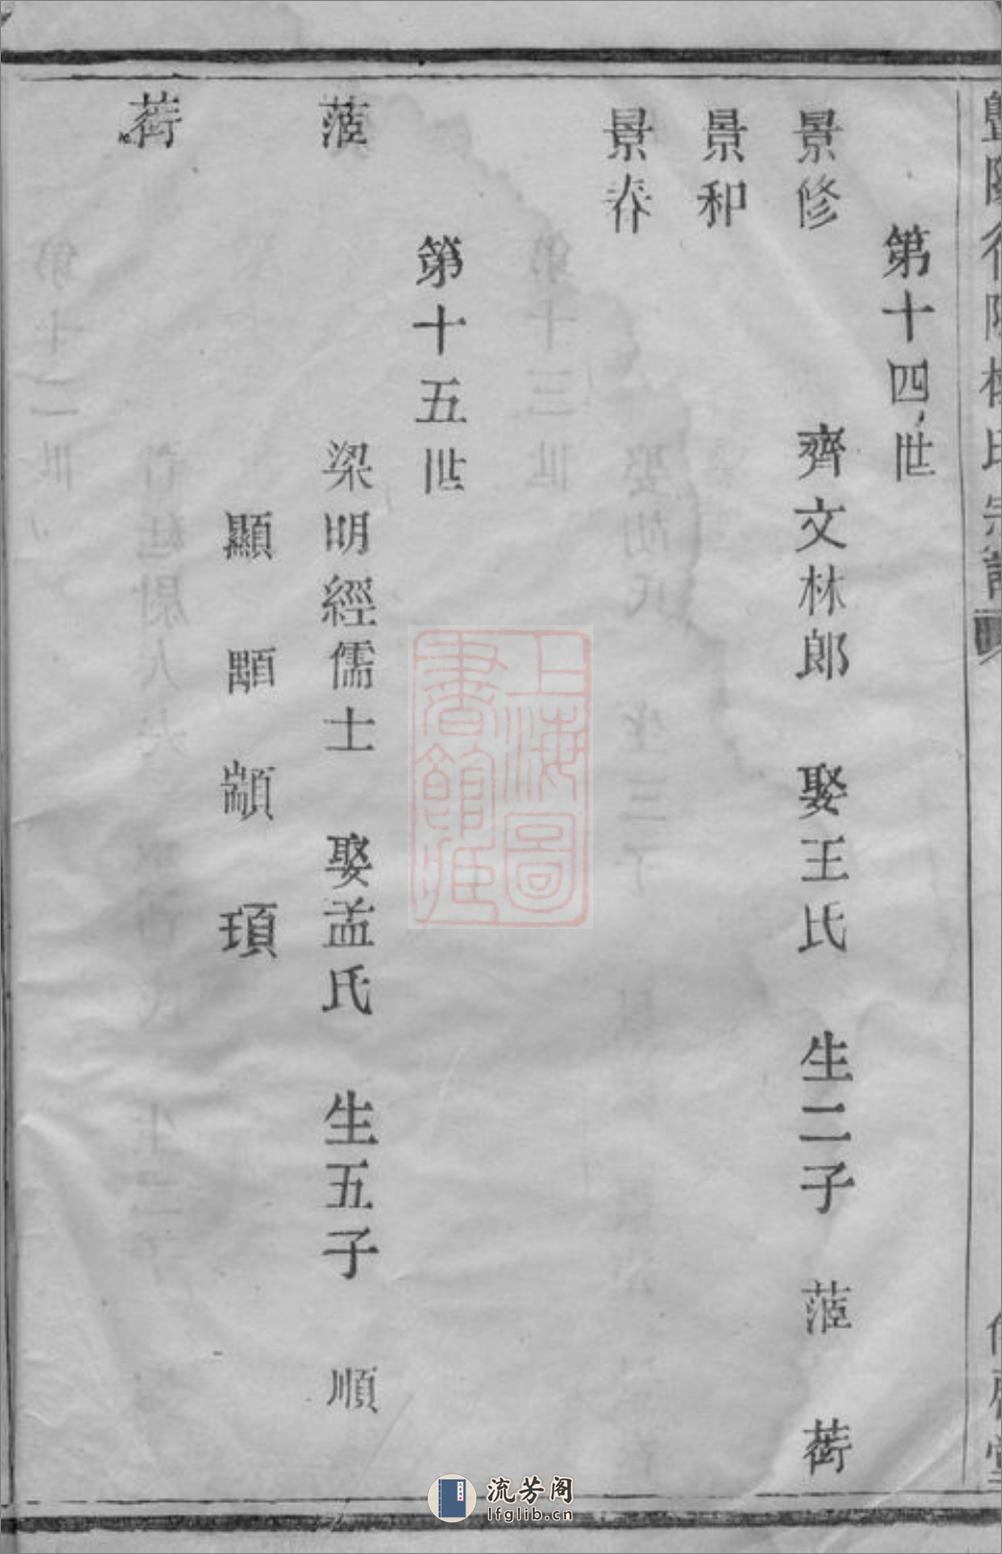 第十四世
景修 齊文林郎 娶王氏 生二子 蒞 荷
景和
景春
第十五世
蒞 梁明經儒士 娶孟氏 生五子 順
顯 顒 顓 頊
荷
上海圖書館藏
流芳阁
lfglib.cn